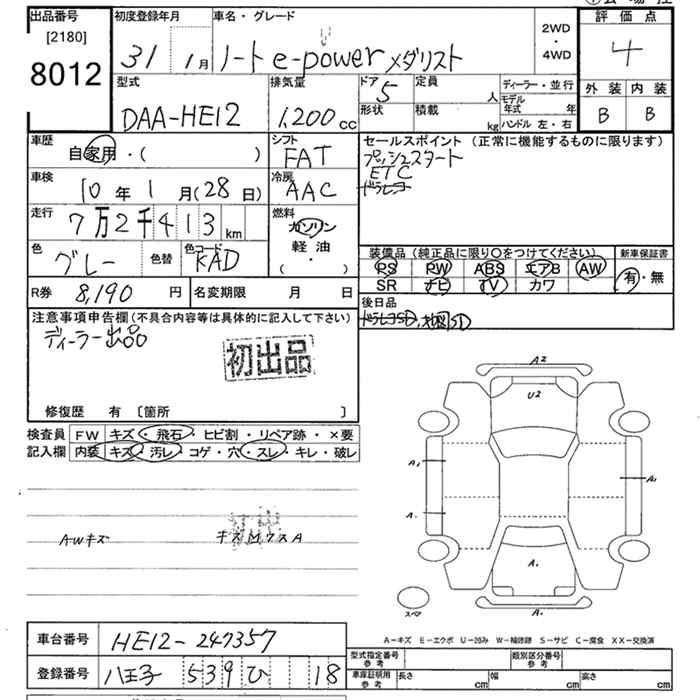 出品番号
[2180]
8012
初度登録年月
31 1月
車名・グレード
ノート e-power メダリスト
2WD
・
4WD
評価点
4
外装 内装
B B
型式
DAA-HE12
排気量
1,200 cc
ドア
5
定員
人
形状
積載
kg
ディーラー・並行
モデル年式 年
ハンドル 左・右
車歴
自家用・( )
シフト
FAT
セールスポイント (正常に機能するものに限ります)
プッシュスタート
ETC
ドラレコ
車検
10年 1月(28日)
冷房
AAC
走行
7万2千413km
燃料
ガソリン
軽油
( )
色
グレー
色替
色コード
KAD
装備品 (純正品に限り○をつけてください)
PS PW ABS エアB AW
SR ナビ TV カワ
新車保証書
有・無
R券 8,190 円
名変期限 月 日
後日品
ドラレコSD,
注意事項申告欄(不具合内容等は具体的に記入して下さい)
ディーラー出品
初出品
修復歴 有 〔箇所 〕
検査員 FW キズ・飛石・ヒビ割・リペア跡・×要
記入欄 内装 キズ・汚レ・コゲ・穴・スレ・キレ・破レ
AWキズ
A2
U2
A1
A1
A1
A1
A1
スペア
A-キズ E-エクボ U-凹み W-補修跡 S-サビ C-腐食 XX-交換済
車台番号 HE12-247357
登録番号 八王子 539 ひ 18
型式指定番号
参考
類別区分番号
参考
車庫証明用
参考
長さ cm 幅 cm 高さ cm